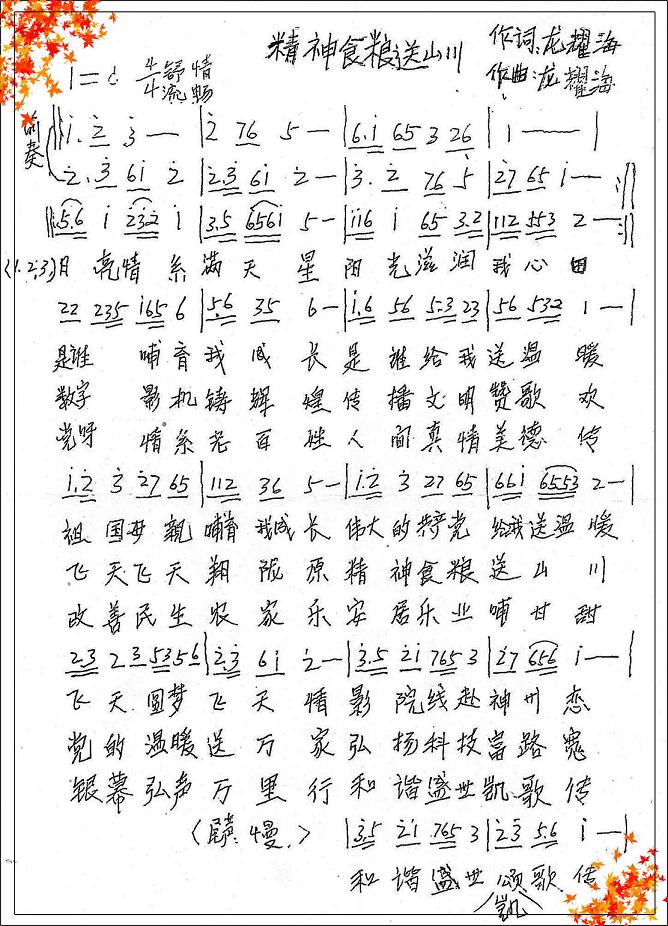 精神食粮送山川
作词:龙耀海
作曲:龙耀海
1=C 4/4 舒情 流畅
前奏
1.2 3 — | 2 76 5 — | 6.1 65 3 26 | 1 — |
2.3 61 2 | 2.3 61 2 — | 3. 2 76 5 | 27 65 1 — :||
||: 5.6 1 232 1 | 3.5 6561 5 — | 116 1 65 3.2 | 112 553 2 — :||
(1.2.3.)月亮情系满天星阳光滋润我心田
22 235 165 6 | 5.6 35 6 — | 1.6 56 5.3 23 | 56 532 1 — |
是谁哺育我成长是谁给我送温暖
数字影机铸辉煌传播文明赞歌欢
党呀情系老百姓人间真情美德传
1.2 3 27 65 | 112 36 5 — | 1.2 3 27 65 | 661 6553 2 — |
祖国母亲哺育我成长伟大的共产党给我送温暖
飞天飞天翔陇原精神食粮送山川
改善民生农家乐安居乐业哺甘甜
2.3 2 3 53 56 | 2.3 61 2 — | 3.5 21 765 3 | 27 656 1 — |
飞天圆梦飞天情影院线赴神州恋
党的温暖送万家弘扬科技富路宽
银幕弘声万里行和谐盛世凯歌传
〈尾声:慢.〉 | 3.5 21 765 3 | 23 5.6 1 — |
和谐盛世颂歌传
凯